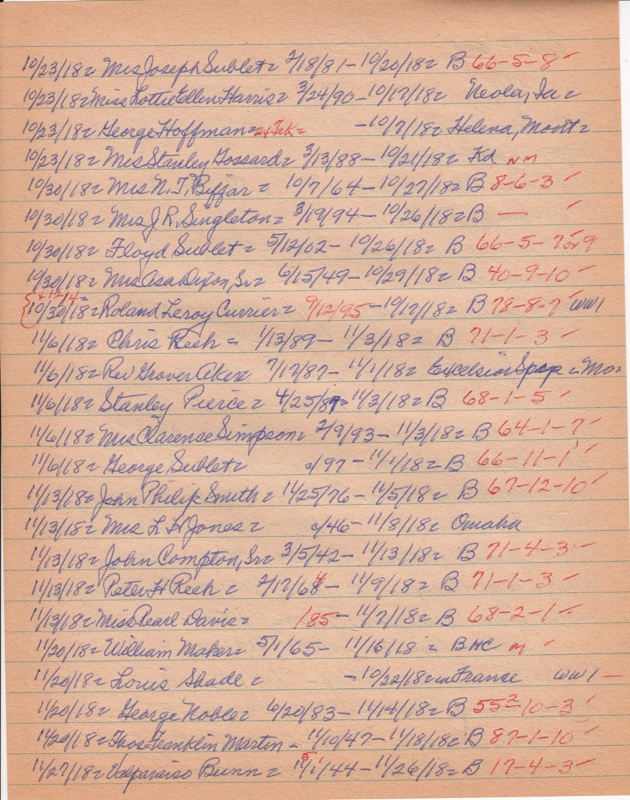 10/23/18= Mrs Joseph Sublet= 2/18/81 - 10/20/18= B 66-5-8
10/23/18= Miss Lottie Ellen Harris= 3/24/90 - 10/17/18= Neola, Ia =
10/23/18= George Hoffman= - 10/7/18= Helena, Mont=
10/23/18= Mrs Stanley Gossard= 3/13/88 - 10/21/18= Kd nm
10/30/18= Mrs N. T. Biffar= 10/7/64 - 10/27/18= B 8-6-3
10/30/18= Mrs J R, Singleton= 3/19/94 - 10/26/18= B —
10/30/18= Floyd Sublet= 5/12/02 - 10/26/18= B 66-5-7 or 9
10/30/18= Mrs Asa Dixon, Sr= 6/15/49 - 10/29/18= B 40-9-10
10/30/18= Roland Leroy Currier= 9/12/95 - 10/17/18= B 78-8-7 WW1
11/6/18= Chris Reeh = 1/13/89 - 11/3/18= B 71-1-3
11/6/18= Rev Grover Aken 7/17/87 - 11/1/18= Excelsior Spgs = Mo=
11/6/18= Stanley Pierce= 4/25/89 - 11/3/18= B 68-1-5
11/6/18= Mrs Clarense Simpson= 2/9/93 - 11/3/18= B 64-1-7
11/6/18= George Sublet= c/97 - 11/1/18= B 66-11-1
11/13/18= John Philip Smith= 11/25/76 - 11/5/18= B 67-12-10
11/13/18= Mrs L H Jones= c/46 - 11/8/18= Omaha
11/13/18= John Compton, Sr= 3/5/42 - 11/13/18= B 71-4-3
11/13/18= Peter H Reeh= 2/17/64 - 11/9/18= B 71-1-3
11/13/18= Miss Pearl Davis= /85 - 11/7/18= B 68-2-1
11/20/18= William Maher= 5/1/65 - 11/16/18= BHC m
11/20/18= Louis Slade= - 10/22/18= in France WW1 —
11/20/18= George Noble= 6/20/83 - 11/14/18= B 55²-10-3
11/20/18= Thos Franklin Martin - 11/10/47 - 11/18/18= B 87-1-10
11/27/18= Valparaiso Bunn= /1/44 - 11/26/18= B 17-4-3